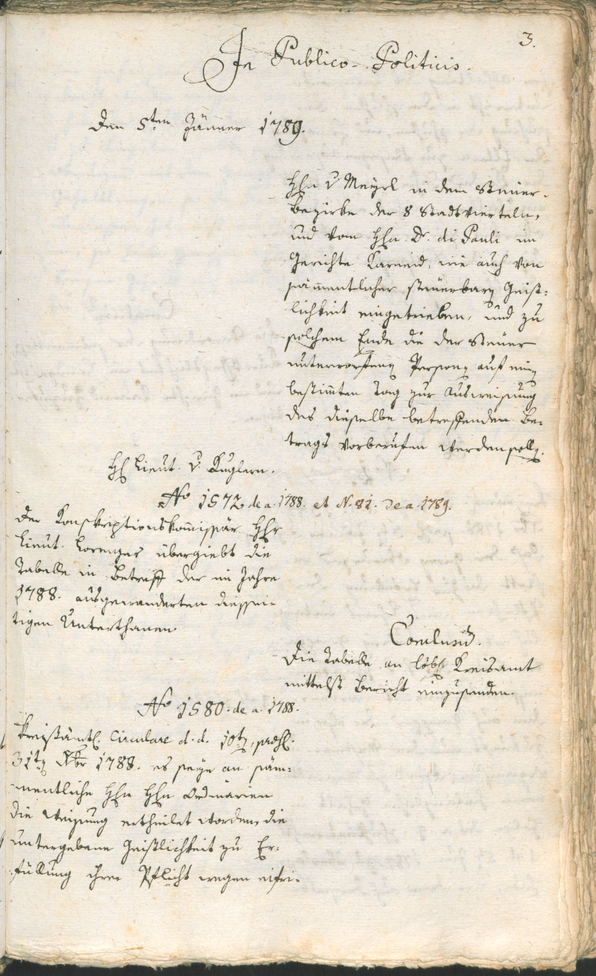 3.
In Publico-Politicis.
Den 5ten Jänner 1789.
Hhn v Meyrl in dem Steuer-
bezirke der 8 Stadtvierteln,
und vom Hhn Dr. di Pauli im
Gerichte Karneid, wie auch von
sämmentlicher steuerbarn Geist-
lichkeit eingetrieben, und zu
solchem Ende die der Steuer
unterworfenen Personen auf einen
bestimten Tag zur Ausweisung
des dieselbe betreffenden Be-
trags vorberufen werden solle.
H Lieut. v. Kuglern.
No 1572 de a. 1788. et N. 82. de a. 1789.
Der Konskriptionskommissär Hhr
Lieut. Lorenger übergiebt die
Tabelle in Betreff der im Jahre
1788. ausgewanderten diessei-
tigen Unterthanen
Conclusum.
Die Tabelle an löbl. Kreisamt
mittelst Bericht einzusenden.
No 1580. de a. 1788.
Kreisämtl. Circulare d. d. 10ten
31ten Xber 1788. es seye an säm-
mentliche Hhn Hhn Ordinarien
die Weisung ertheilet worden, die
untergebene Geistlichkeit zu Er-
füllung ihrer Pflicht wegen eifri-